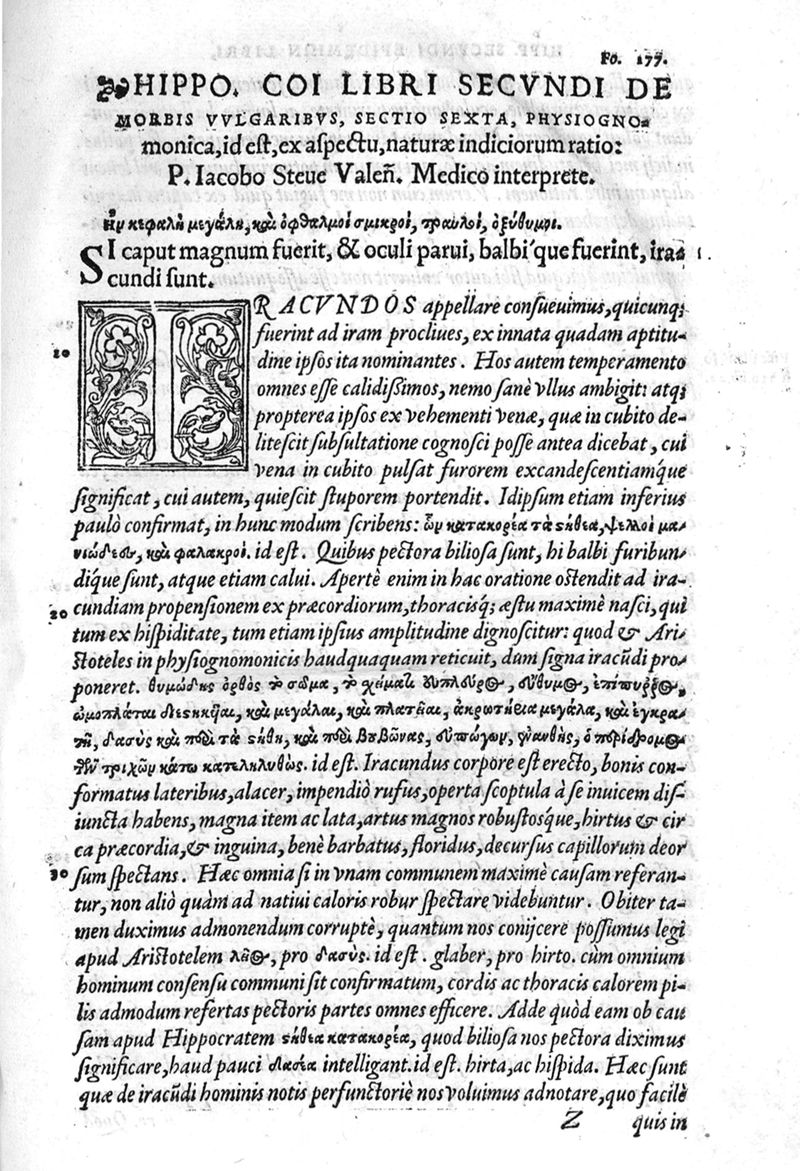 Fo. 177.
HIPPO. COI LIBRI SECVNDI DE
MORBIS VVLGARIBVS, SECTIO SEXTA, PHYSIOGNO-
monica, id est, ex aspectu, naturæ indiciorum ratio:
P. Iacobo Steue Valeñ. Medico interprete.
Ἢν κεφαλὴ μεγάλη, καὶ ὀφθαλμοὶ σμικροὶ, τραυλοὶ, ὀξύθυμοι.
SI caput magnum fuerit, & oculi parui, balbi´que fuerint, ira- 1.
cundi sunt.
IRACVNDOS appellare consueuimus, quicunq;
fuerint ad iram procliues, ex innata quadam aptitu-
10 dine ipsos ita nominantes. Hos autem temperamento
omnes esse calidißimos, nemo sanè vllus ambigit: atq;
propterea ipsos ex vehementi venæ, quæ in cubito de-
litescit subsultatione cognosci posse antea dicebat, cui
vena in cubito pulsat furorem excandescentiamq́ue
significat, cui autem, quiescit stuporem portendit. Idipsum etiam inferius
paulò confirmat, in hunc modum scribens: ὧν κατακορέα τὰ στήθεα, ψελλοὶ μα-
νιώδεες, καὶ φαλακροί. id est. Quibus pectora biliosa sunt, hi balbi furibun-
diq́ue sunt, atque etiam calui. Apertè enim in hac oratione ostendit ad ira-
20 cundiam propensionem ex præcordiorum, thoracisq́; æstu maximè nasci, qui
tum ex hispiditate, tum etiam ipsius amplitudine dignoscitur: quod & Ari-
stoteles in physiognomonicis haudquaquam reticuit, dum signa iracũdi pro-
poneret. θυμώδης ὀρθὸς τὸ σῶμα, τὸ χήματι εὔπλευρος, εὔθυμος, ἐπίπυρρος,
ὠμοπλάται διεστηκῆαι, καὶ μεγάλαι, καὶ πλατεῖαι, ἀκρωτήεια μεγάλα, καὶ ἐγκρα-
τῆ, δασὺς καὶ περὶ τὰ στήθη, καὶ περὶ βουβῶνας, εὐπώγων, εὐανθὴς, ὁ περίδρομος
τῶν τριχῶν κάτω κατεληλυθώς. id est. Iracundus corpore est erecto, bonis con-
formatus lateribus, alacer, impendiò rufus, operta scoptula à se inuicem dis-
iuncta habens, magna item ac lata, artus magnos robustosq́ue, hirtus & cir
ca præcordia, & inguina, benè barbatus, floridus, decursus capillorum deor
30 sum spectans. Hæc omnia si in vnam communem maximè causam referan-
tur, non aliò quàm ad natiui caloris robur spectare videbuntur. Obiter ta-
men duximus admonendum corruptè, quantum nos conijcere possumus legi
apud Aristotelem λεῖος, pro δασύς. id est. glaber, pro hirto. cùm omnium
hominum consensu communi sit confirmatum, cordis ac thoracis calorem pi-
lis admodum refertas pectoris partes omnes efficere. Adde quòd eam ob cau
sam apud Hippocratem στήθεα κατακορέα, quod biliosa nos pectora diximus
significare, haud pauci δασέα intelligant. id est. hirta, ac hispida. Hæc sunt
quæ de iracũdi hominis notis perfunctoriè nos voluimus adnotare, quo facilè
Z quis in